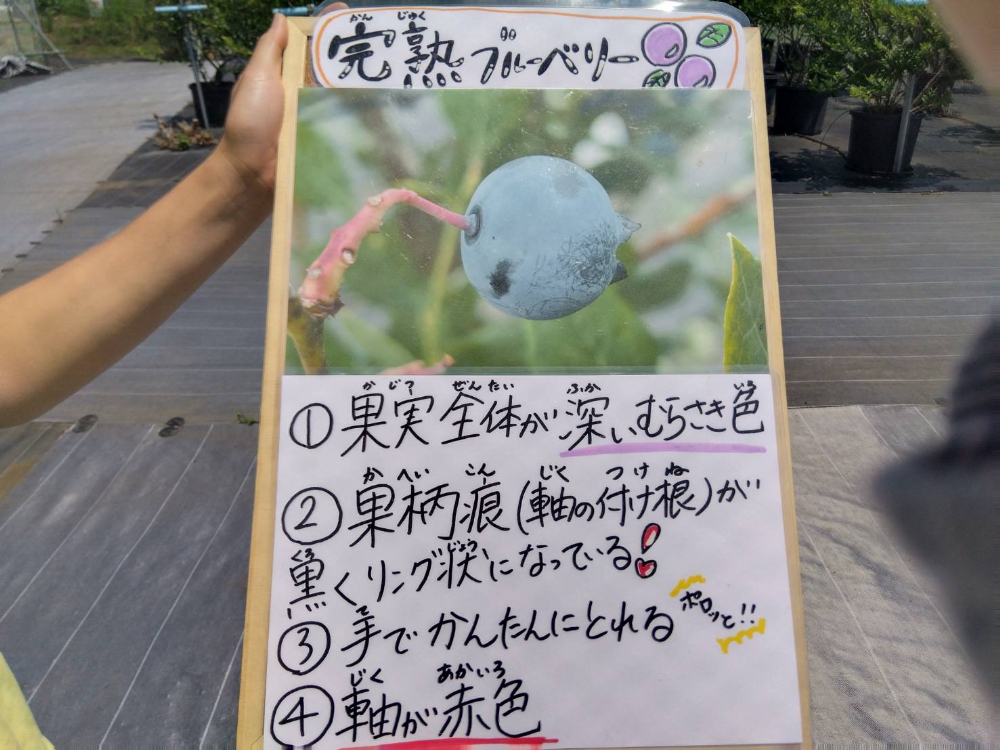 完熟ブルーベリー
かんじゅく
かじつ ぜんたい ふか いろ
①果実全体が深いむらさき色
かへいこん じく つ け ね
②果柄痕(軸の付け根)が
くろ じょう
黒くリング状になっている!
て
③手でかんたんにとれる ポロッと!!
じく あかいろ
④軸が赤色